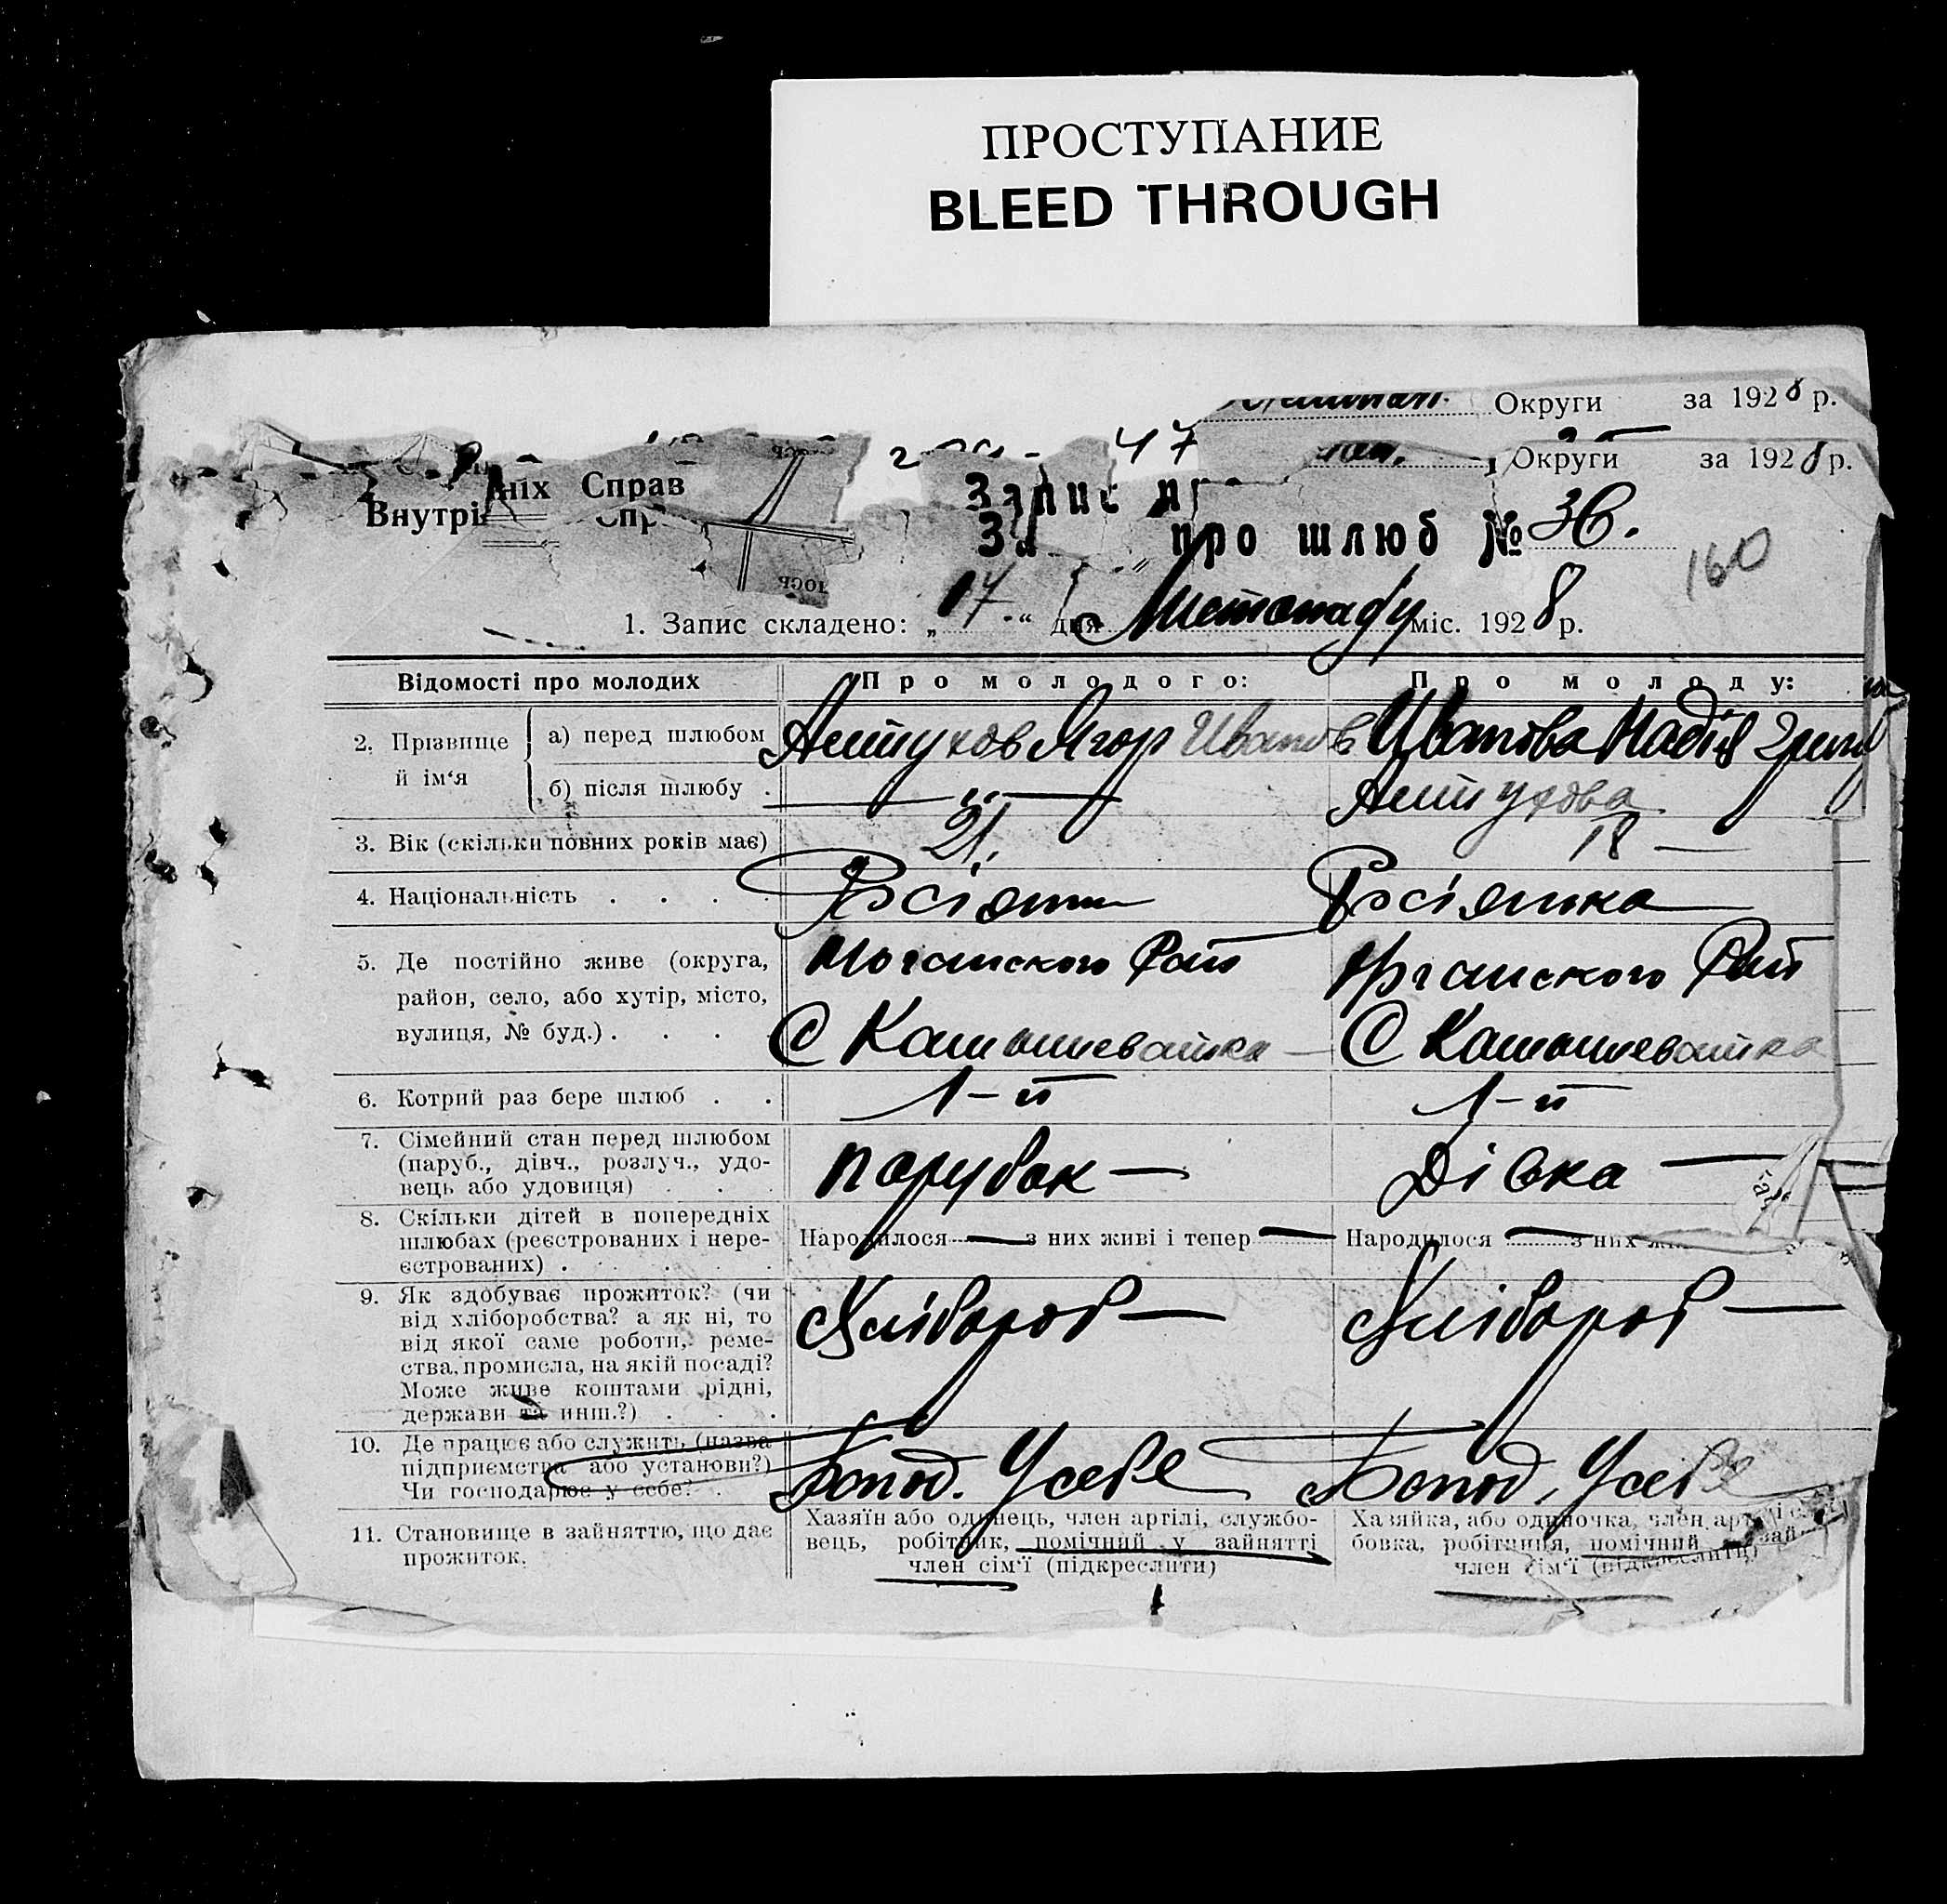 ПРОСТУПАНИЕ
BLEED THROUGH
Округи за 1928 р.
47
Округи за 1928 р.
ніх Справ
Запис
Внутрі
про шлюб № 36.
160
1. Запис складено: „17.“ дня Листопаду міс. 1928 р.
Відомості про молодих Про молодого: Про молоду:
2. Прізвище й ім‘я
а) перед шлюбом Иванов Иванова Надія
б) після шлюбу . —„—
3. Вік (скільки повних років має) 21. 18 —
4. Національність . . . . Росіянин Росіянка
5. Де постійно живе (округа,
район, село, або хутір, місто,
вулиця, № буд.) . . . .
С
С
6. Котрий раз бере шлюб . . 1-й 1-й
7. Сімейний стан перед шлюбом
(паруб., дівч., розлуч., удо-
вець або удовиця) . . .
парубок — Дівка —
8. Скільки дітей в попередніх
шлюбах (реєстрованих і нере-
єстрованих) . . . . .
Народилося — з них живі і тепер —
Народилося — з них
9. Як здобуває прожиток? (чи
від хліборобства? а як ні, то
від якої саме роботи, реме-
ства, промисла, на якій посаді?
Може живе коштами рідні,
держави та инш.?) . . .
Хлібороб — Хлібороб —
10. Де працює або служить (назва
підприємства або установи?)
Чи господарює у себе? .
Госпо. У себе Госпо. У себе
11. Становище в зайняттю, що дає
прожиток.
Хазяїн або одинець, член артілі, службо-
вець, робітник, помічний у зайнятті
член сім‘ї (підкреслити)
Хазяйка, або одиночка, член
бовка, робітниця, помічний зай
член сім‘ї (підкреслити)